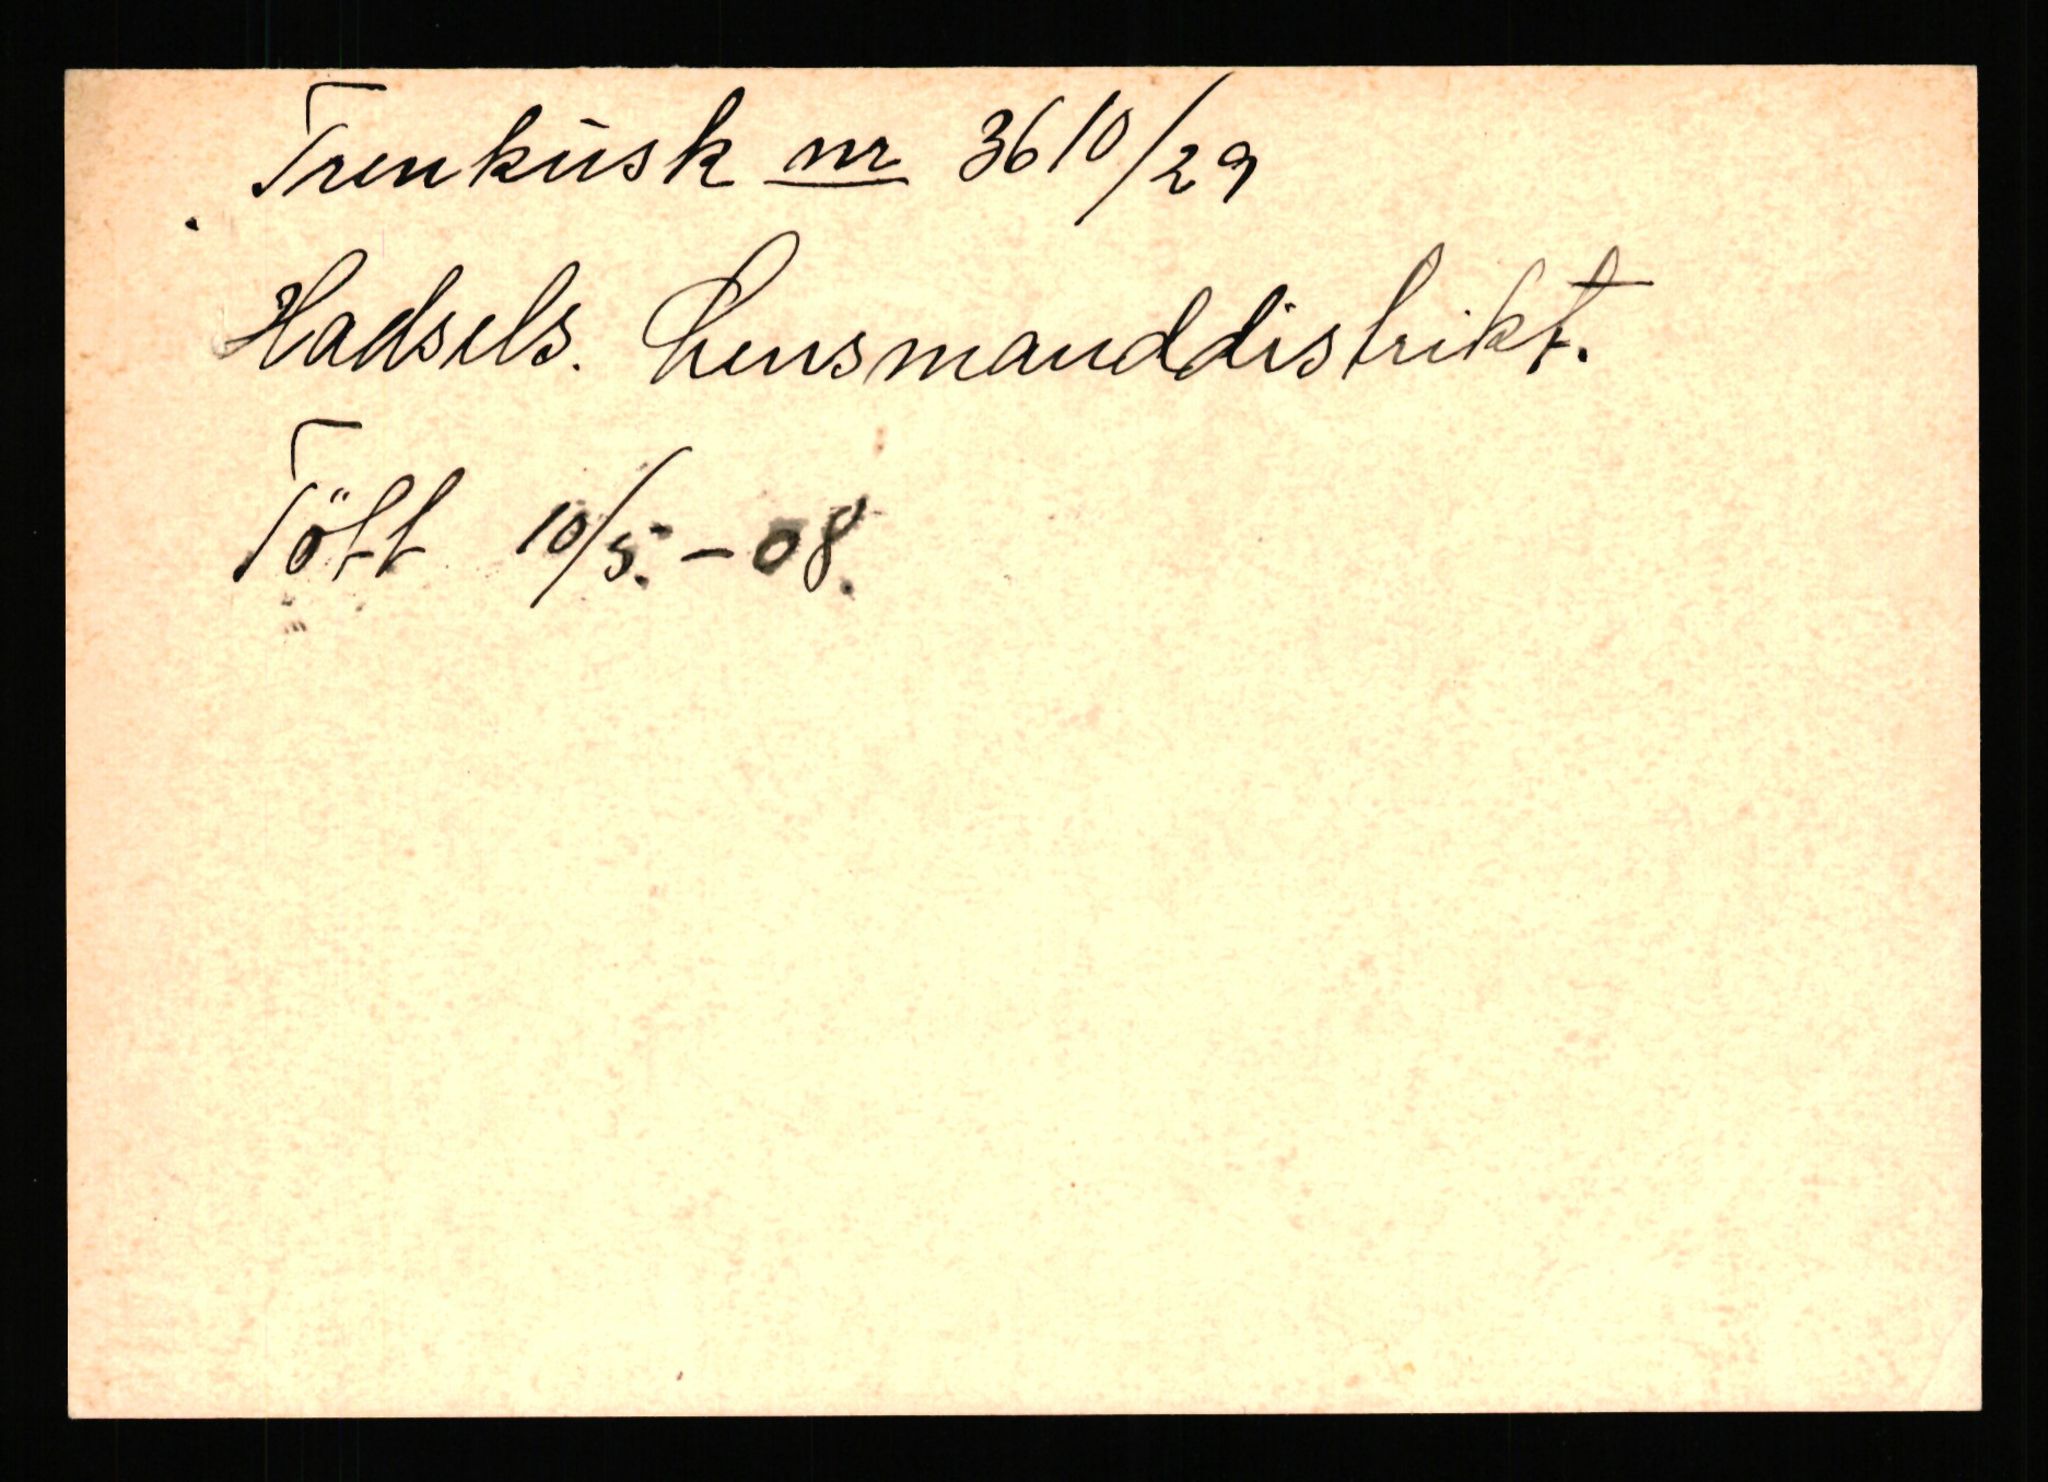 Trenkusk nr 3610/29
Hadsels. Lensmanddistrikt.
Tött 10/5. - 08.